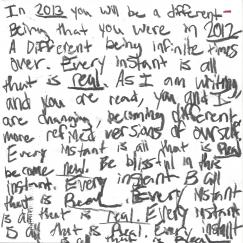 In 2013 you will be a different
Being that you were in 2012
A different being infinite times
over. Every instant is all
that is real. As I am writing
and you are read, you and I
are changing, becoming different
more refined versions of ourself
Every instant is all that is real
become real. Be blissful in this
instant. Every instant is all
that is Real. Every instant
is all that is real. Every instant
is all that is Real. Every instant